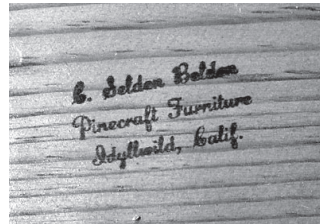 C. Selden Belden
Pinecraft Furniture
Idyllwild, Calif.